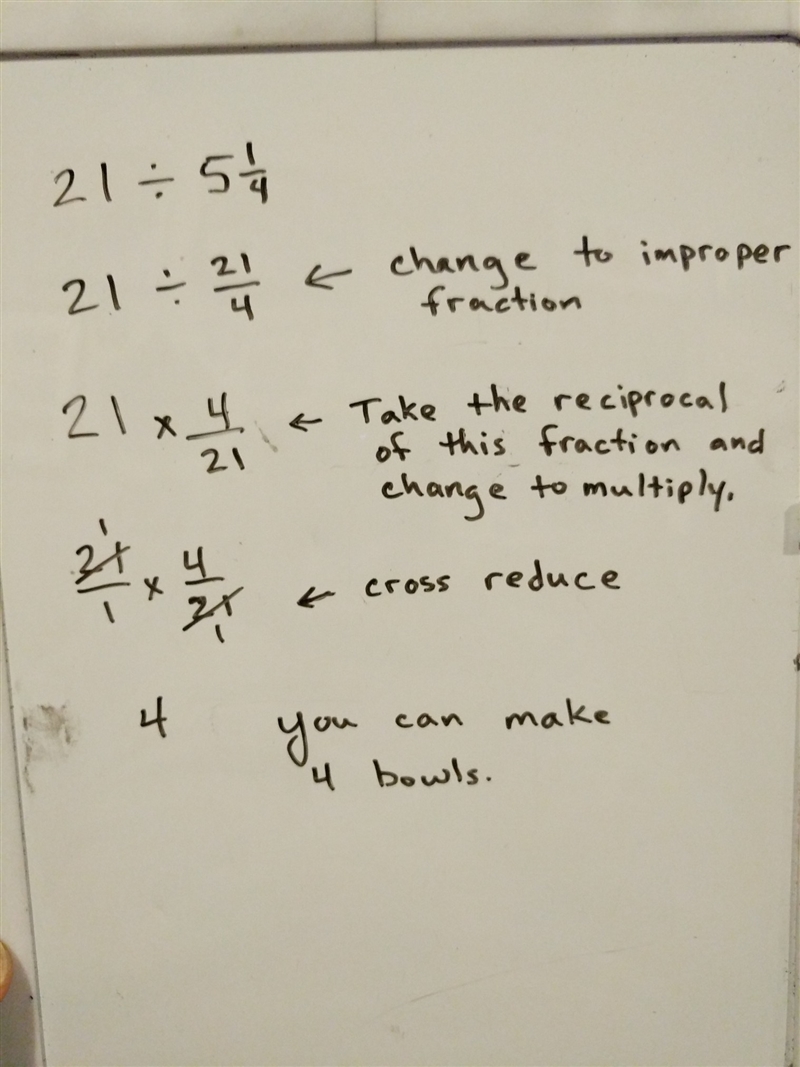 21 ÷ 5 1/4
21 ÷ 21/4 ← change to improper
fraction
21 x 4/21 ← Take the reciprocal
of this fraction and
change to multiply.
1
21/1 x 4/21 ← cross reduce
1
4 you can make
4 bowls.